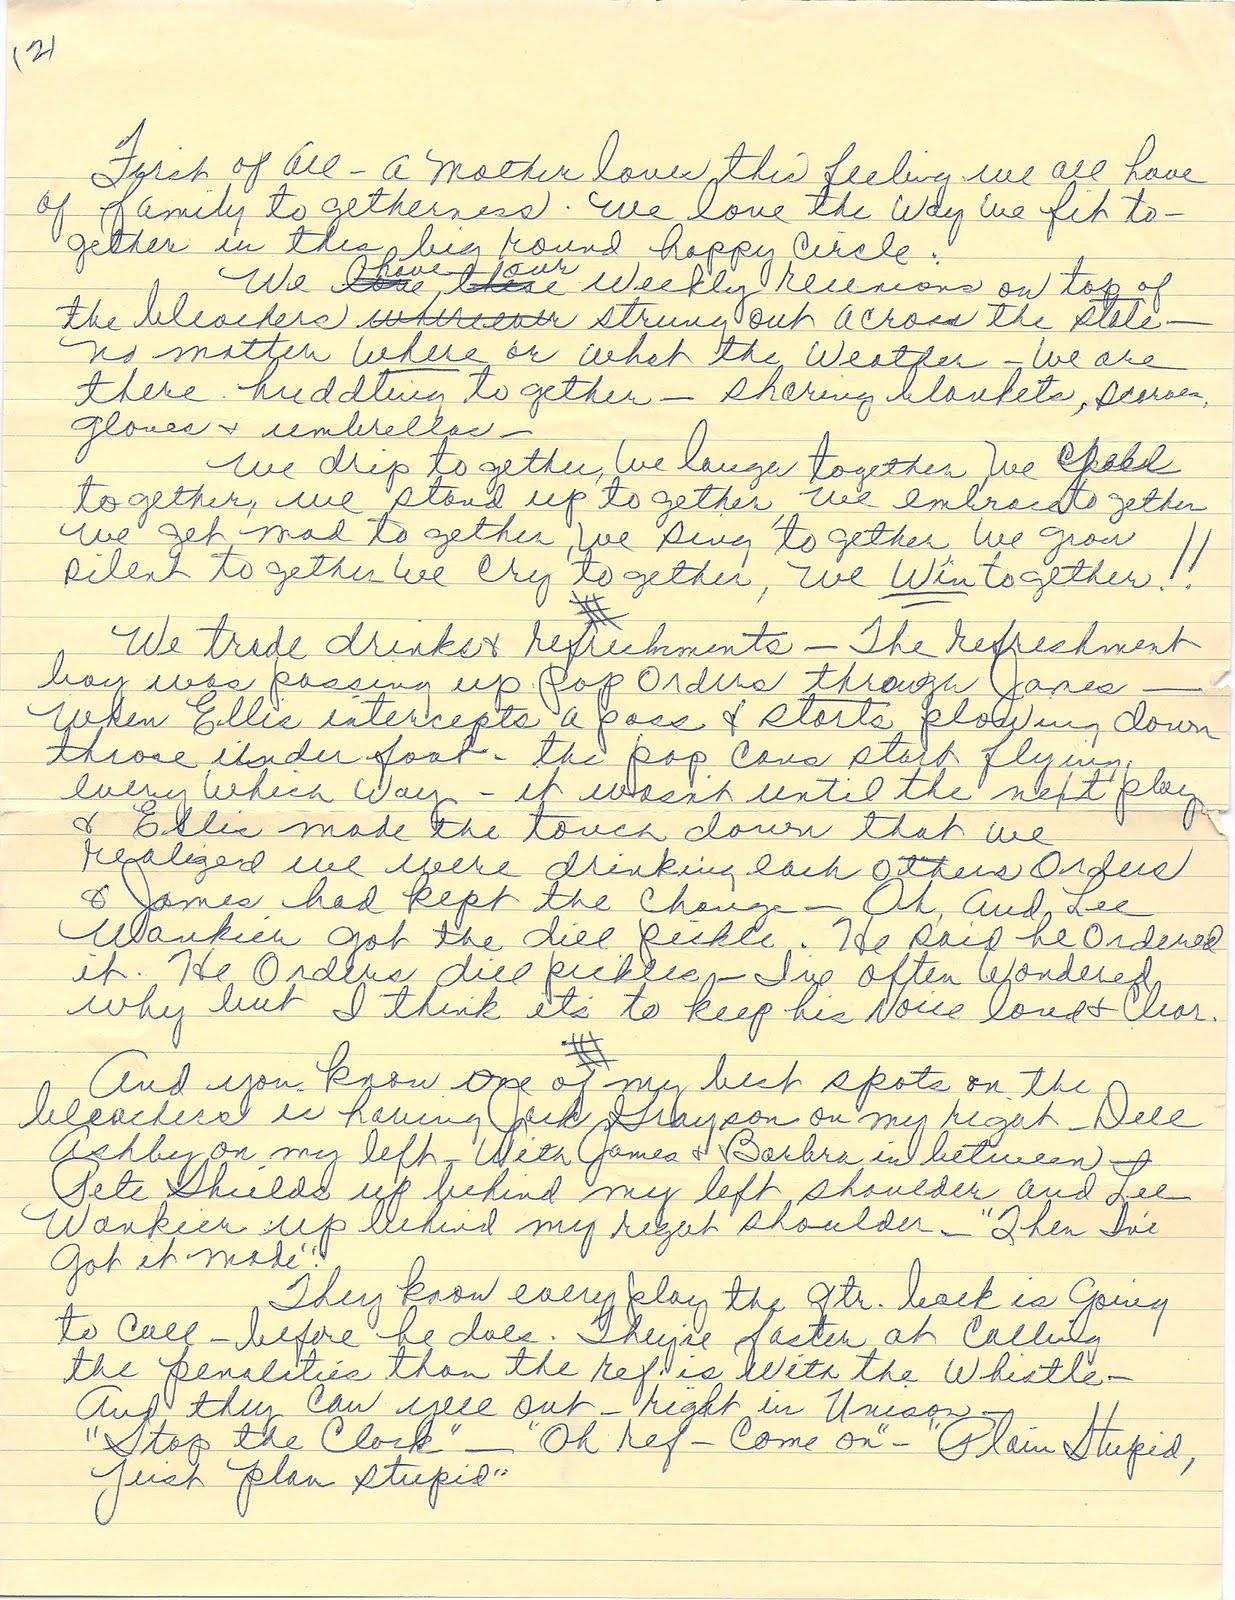 (2)
First of all - a Mother loves this feeling we all have
of family togetherness. We love the way we fit to-
gether in this big round happy circle.
have our
We love these weekly reunions on top of
the bleachers wherever strung out across the state -
no matter where or what the weather - we are
there huddling together - sharing blankets, scarves,
gloves & umbrellas -
We drip together, we laugh together, we
together, we stand up together, we embrace together
we get mad together, we sing together, we grow
silent together we cry together, we Win together!!
#
We trade drinks & refreshments - The refreshment
boy was passing up pop orders through James -
When Ellis intercepts a pass & starts plowing down
those under foot - the pop cans start flying
every which way - it wasn't until the next play
& Ellis made the touch down that we
realized we were drinking each others orders
& James had kept the change - Oh, and Lee
Wankier got the dill pickle. He said he ordered
it. He orders dill pickles - I've often wondered
why but I think it's to keep his voice loud & clear.
#
And you know one of my best spots on the
bleachers is having Jack Grayson on my right - Dell
Ashby on my left - With James & Barbra in between -
Pete Shields up behind my left shoulder and Lee
Wankier up behind my right shoulder - "Then I've
got it made".
They know every play the qtr. back is going
to call - before he does. They're faster at calling
the penalities than the ref. is with the whistle -
And they can yell out - right in unison -
"Stop the Clock" - "Oh ref - Come on" - "Plain Stupid,
just plan stupid"